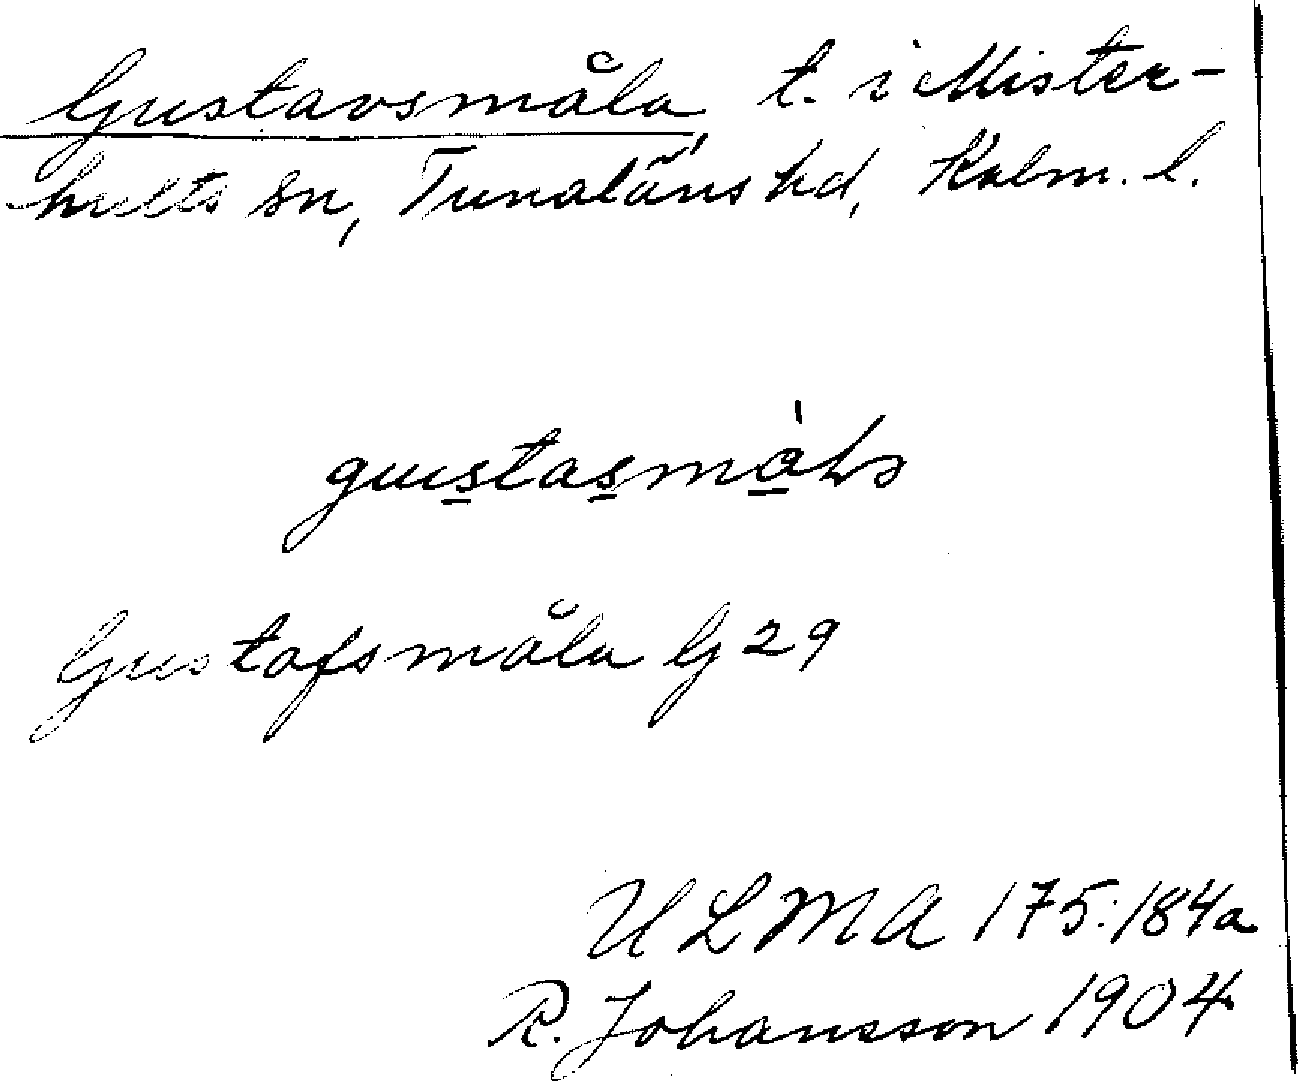 Gustavsmåla, t. i Mister-
hults sn, Tunaläns hd, Kalm. l.
gustasmå̀la
Gustafsmåla G 29
ULMA 175:184a
R. Johansson 1904